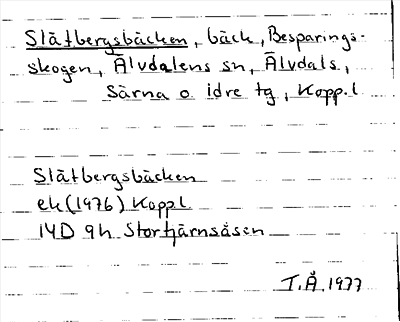 Slåtbergsbäcken, bäck, Besparings-
skogen, Älvdalens sn, Älvdals,
Särna o Idre tg, Kopp.l
Slåtbergsbäcken
ek (1976) Kopp l
14D 9h Stortjärnsåsen
T.Å. 1977